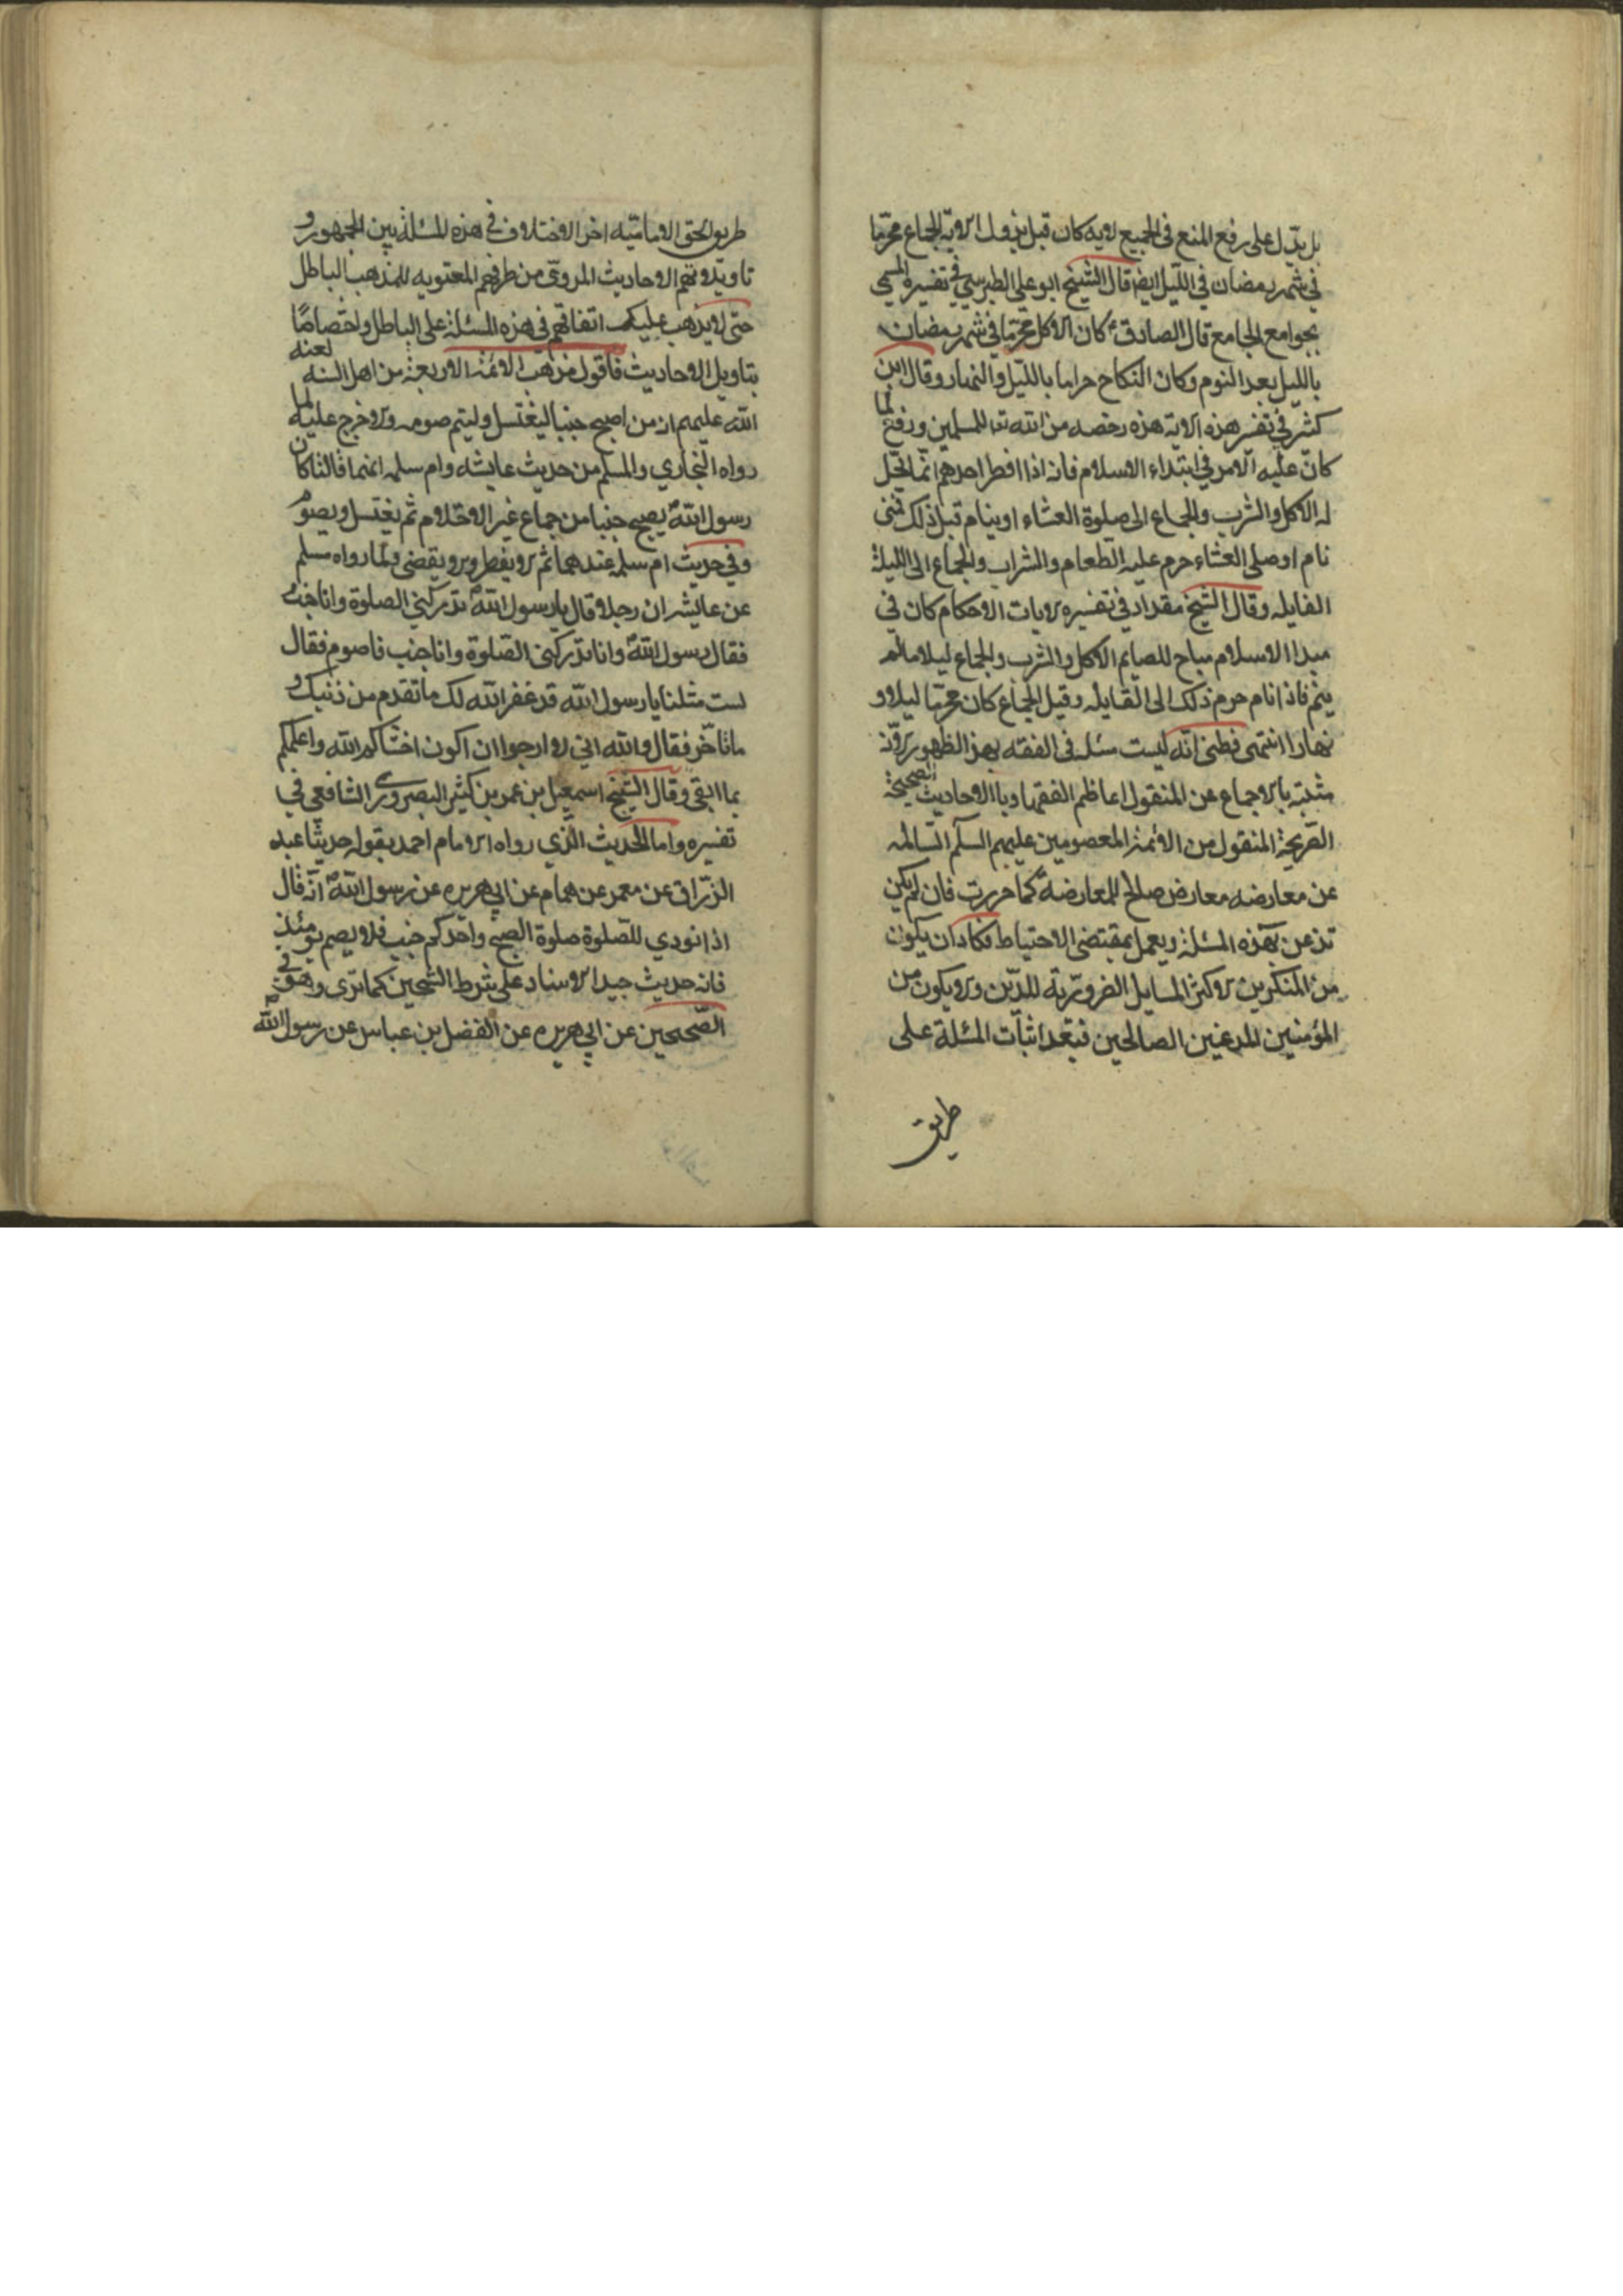 بل يدل على رفع المنع فى الجميع لانه كان قبل نزول الاية الجماع محرما
في شهر رمضان فى الليل ايضا قال الشيخ ابو على الطبرسي في تفسيره المسمى
بجوامع الجامع قال الصادق ع كان الاكل محرما في شهر رمضان
بالليل بعد النوم وكان النكاح حراما بالليل والنهار وقال ابن
كثير في تفسر هذه الاية هذه رخصه من الله تعا للمسلمين ورفع لما
كان عليه الامر في ابتداء الاسلام فانه اذا افطر احدهم انما يحل
له الاكل والشرب والجماع الى صلوة العشاء او ينام قبل ذلك فمتى
نام او صلى العشاء حرم عليه الطعام والشراب والجماع الى الليلة
القابله وقال الشيخ مقداد في تفسيره لايات الاحكام كان في
مبدا الاسلام مباح للصايم الاكل والشرب والجماع ليلا ما لم
ينم فاذا نام حرم ذلك الى القابله وقيل الجماع كان محرما ليلا و
نهارا انتهى فظنى انه ليست مسئله فى الفقه بهذ الظهور لانه
مثبته بالاجماع عن المنقول اعاظم الفقها وبالاحاديث الصحيحة
الصريحة المنقول من الائمة المعصومين عليهم السلم السالمه
عن معارضه معارض صالح للمعارضة كما حررت فان لم يكن
تذعن بهذه المسئلة ويعمل بمقتضى الاحتياط فكاد ان يكون
من المنكرين لاكثر المسايل الضرورية للدين ولا يكون من
المؤمنين المذعنين الصالحين فبعد اثبات المسئلة على
طريق
طريق الحق الامامية اخر الاختلاف في هذه المسئلة بين الجمهور و
تاويلاتهم الاحاديث المروى من طرفهم المعتويه للمذهب الباطل
حتى لا يذهب عليك اتفاقهم فى هذه المسئلة على الباطل واختصاصا
بتاويل الاحاديث فاقول مذهب الائمة الاربعة من اهل السنه لعنه
الله عليهم ان من اصبح جنبا ليغتسل وليتم صومه ولا حرج عليه لما
رواه البخاري والمسلم من حديث عايشه وام سلمه انهما قالتا كان
رسول الله يصبح جنبا من جماع غير الاحتلام ثم يغتسل ويصوم
وفي حديث ام سلمه عندهما ثم لا يفطر ولا يقضى ولما رواه مسلم
عن عايشه ان رجلا قال يا رسول الله تدركني الصلوة وانا جنب
فقال رسول الله وانا تدركنى الصلوة وانا جنب فاصوم فقال
لست مثلنا يا رسول الله قد غفر الله لك ما تقدم من ذنبك و
ما تاخر فقال والله اني لارجوا ان اكون اخشاكم لله واعلمكم
بما اتقى وقال الشيخ اسمعيل بن عمر بن كثير البصروى الشافعي في
تفسيره واما الحديث الذي رواه الامام احمد بقوله حديثا عبد
الرزاق عن معمر عن همام عن ابي هريره عن رسول الله انه قال
اذا نودي للصلوة صلوة الصبح واحدكم جنب فلا يصم يومئذ
فانه حديث جيد الاسناد على شرط الشيخين كما ترى وهو في
الصحيحين عن ابي هريره عن الفضل بن عباس عن رسول الله